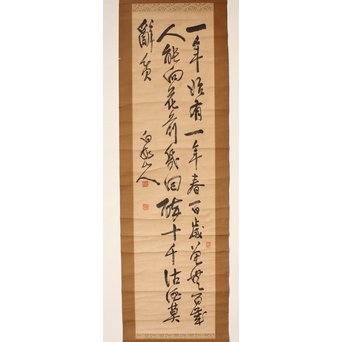 一年始有一年春百歲曾無百歲
人能向花前幾回醉十千沽酒莫
辭貧
山人